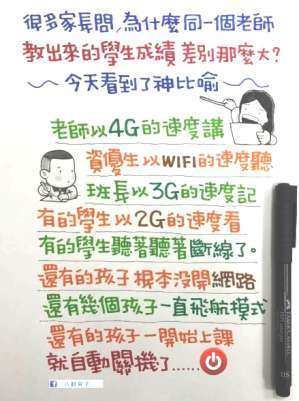 很多家長問,為什麼同一個老師
教出來的學生成績差別那麼大?
~~今天看到了神比喻~~
老師以4G的速度講
資優生以WIFI的速度聽
班長以3G的速度記
有的學生以2G的速度看
有的學生聽著聽著斷線了。
還有的孩子根本沒開網路
還有幾個孩子一直飛航模式
還有的孩子一開始上課
就自動關機了......